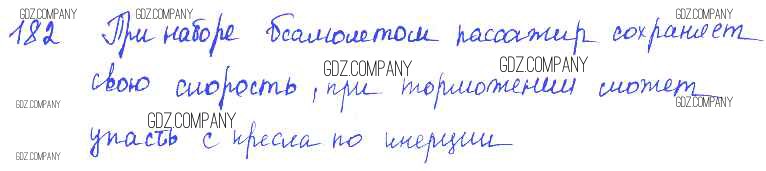 GDZ.COMPANY GDZ.COMPANY GDZ.COMPANY
182 При наборе самолетом пассажир сохраняет
GDZ.COMPANY GDZ.COMPANY
свою скорость, при торможении может
GDZ.COMPANY GDZ.COMPANY
GDZ.COMPANY
упасть с кресла по инерции
GDZ.COMPANY